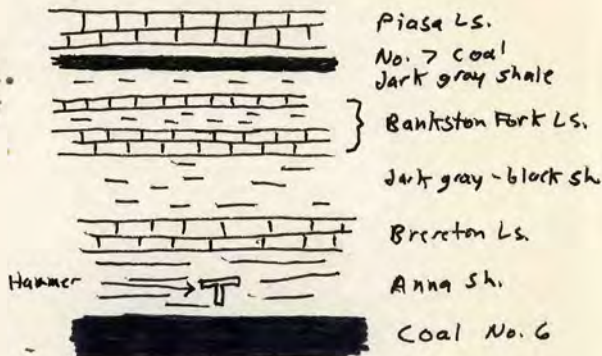 Piasa Ls.
No. 7 Coal
dark gray shale
Bankston Fork Ls.
dark gray-black sh.
Brereton Ls.
Hammer
Anna Sh.
Coal No. 6